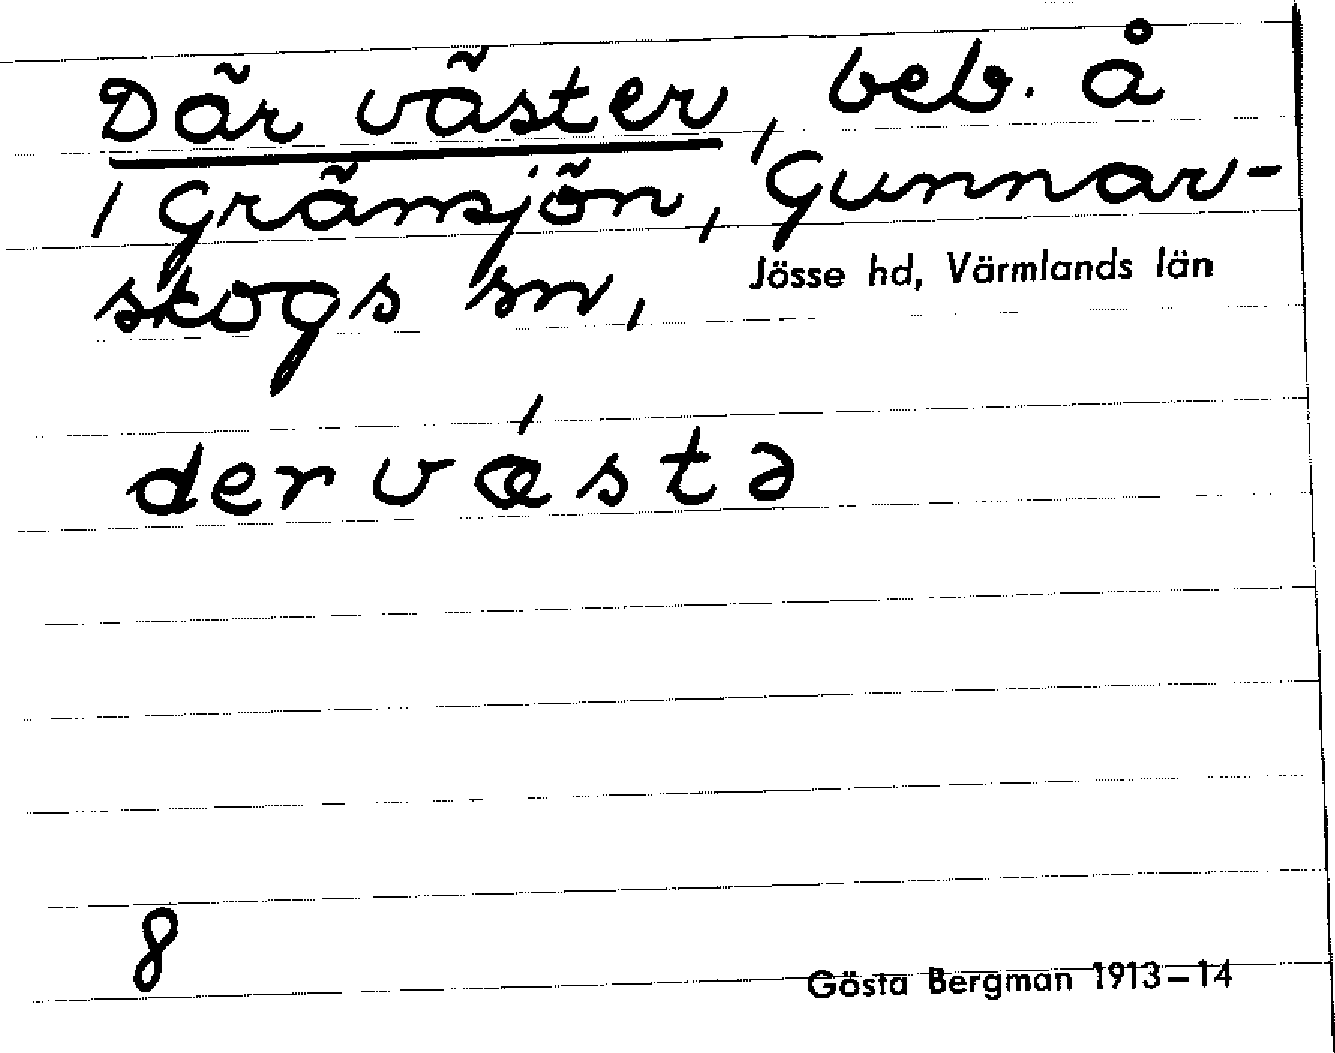 Där väster, beb. å
1 Gränsjön, Gunnar-
skogs sn, Jösse hd, Värmlands län
dervǽstə
8
Gösta Bergman 1913–14